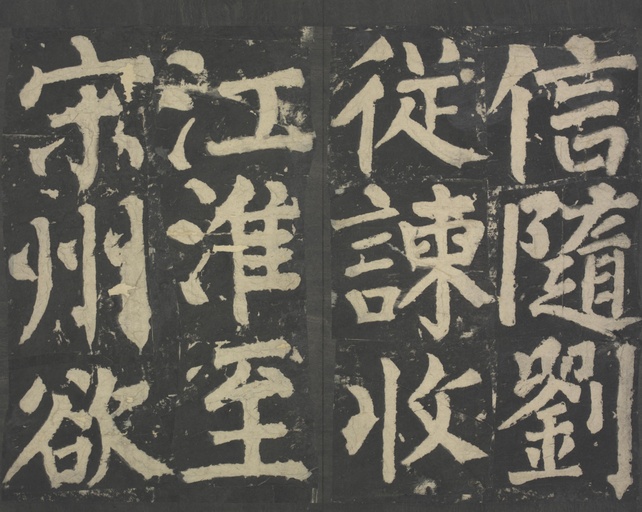 信隨劉
從諫收
江淮至
宋州欲